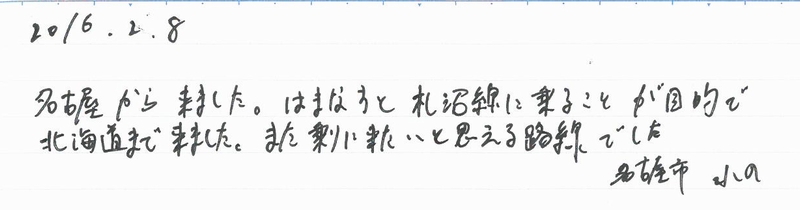 2016.2.8
名古屋から来ました。はまなすと札沼線に乗ることが目的で
北海道まで来ました。また乗りに来たいと思える路線でした
名古屋市 水の